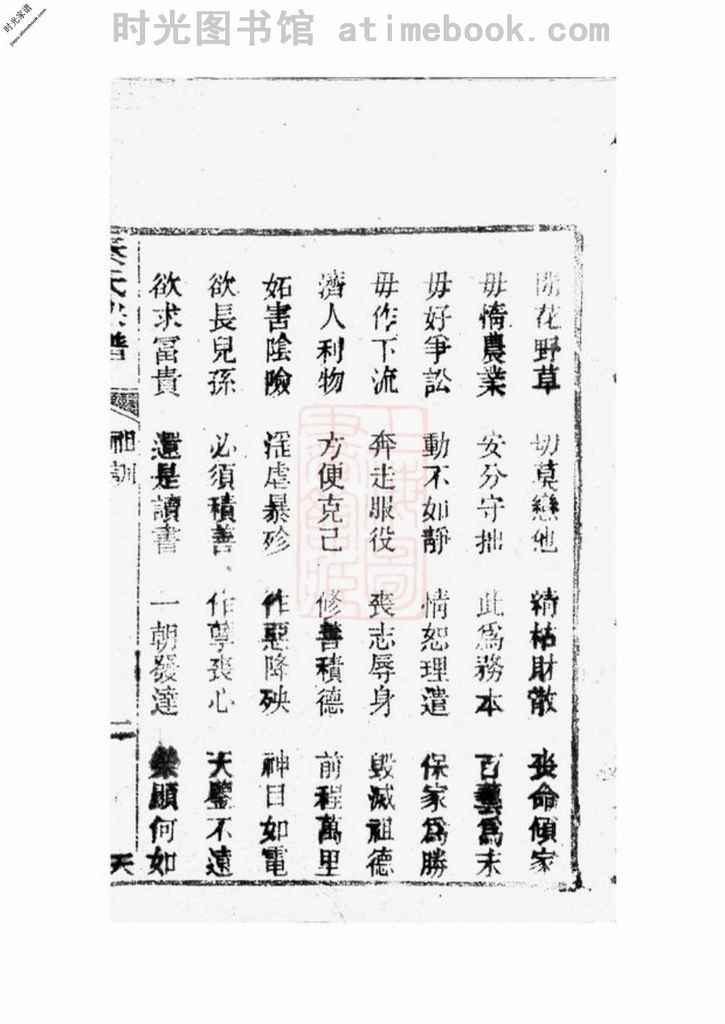 时光图书馆 atimebook.com
时光家谱
閒花野草 切莫戀他 精枯財散 喪命傾家
毋惰農業 安分守拙 此爲務本 百藝爲末
毋好爭訟 動不如靜 情恕理遣 保家爲勝
毋作下流 奔走服役 喪志辱身 毀滅祖德
濟人利物 方便克己 修善積德 前程萬里
妬害陰險 淫虐暴殄 作惡降殃 神目如電
欲長兒孫 必須積善 作孽喪心 天鑒不遠
欲求富貴 還是讀書 一朝發達 榮顯何如
氏宗譜 祖訓 二 天